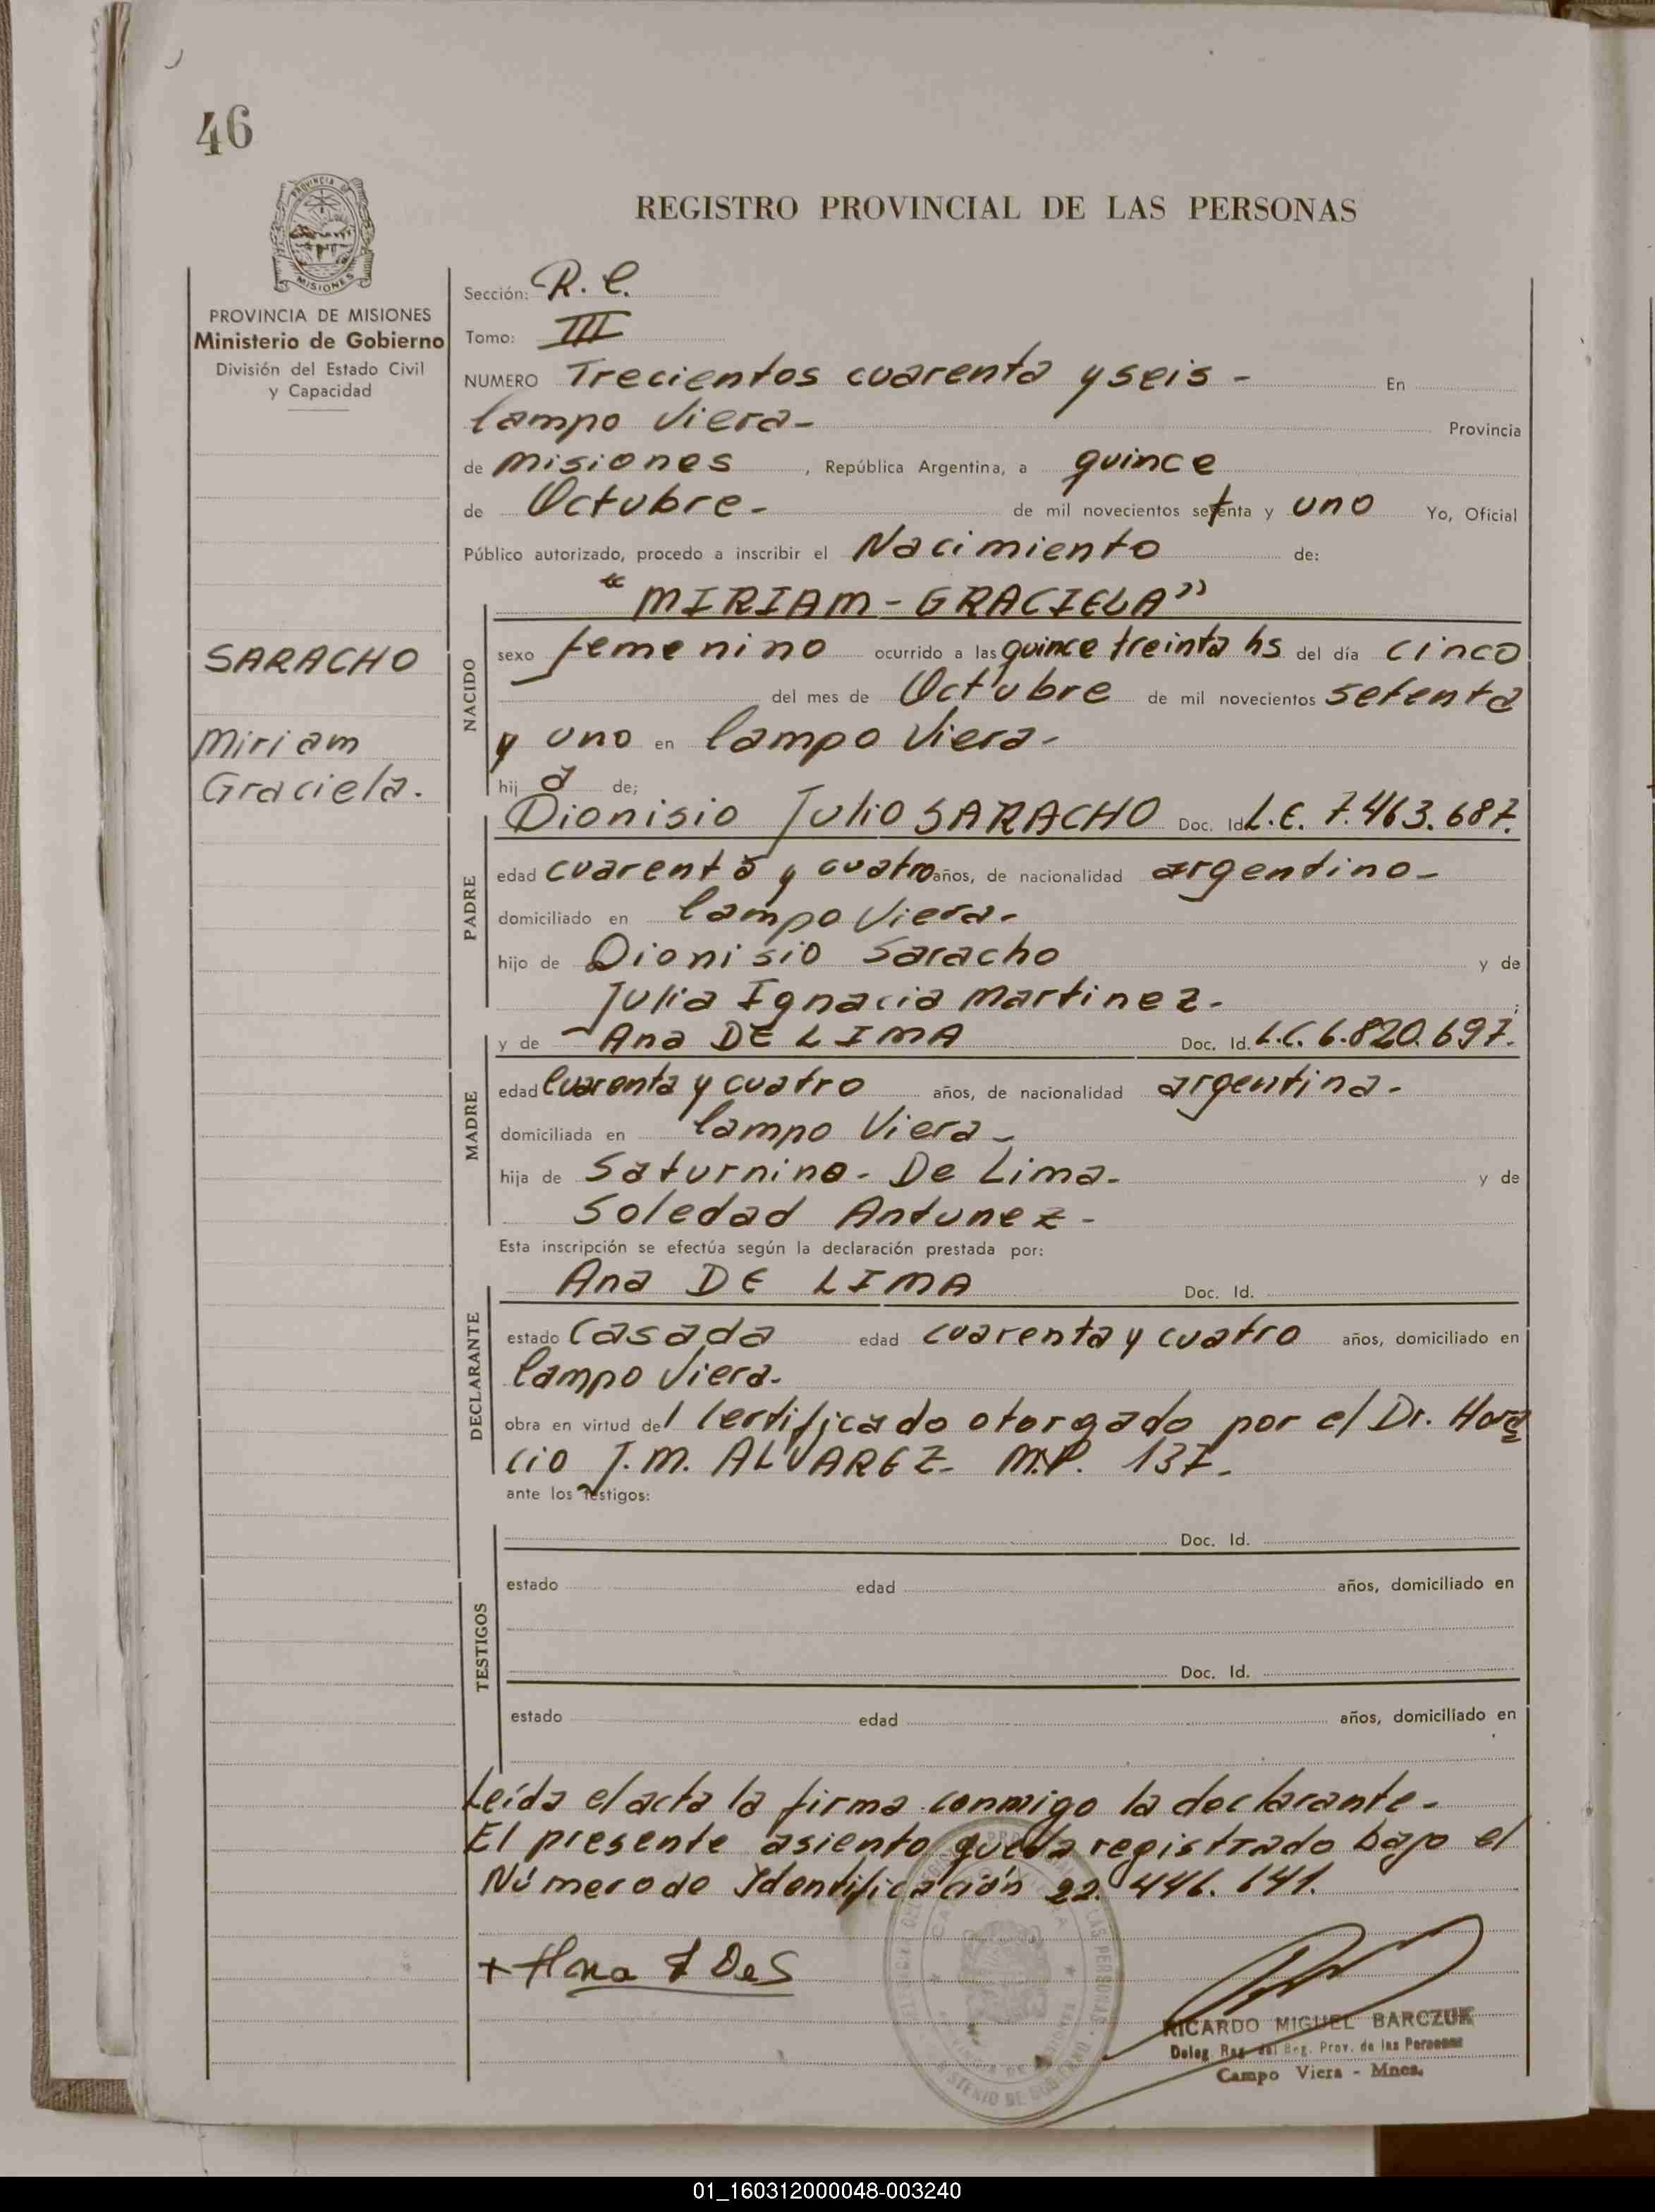 46
REGISTRO PROVINCIAL DE LAS PERSONAS
PROVINCIA DE MISIONES
Ministerio de Gobierno
División del Estado Civil
y Capacidad
SARACHO
Miriam
Graciela.
Sección: R. C.
Tomo: III
NUMERO Trecientos cuarenta y seis - En
Campo Viera-
Provincia
de Misiones , República Argentina, a quince
de Octubre- de mil novecientos setenta y uno Yo, Oficial
Público autorizado, procedo a inscribir el Nacimiento de:
"MIRIAM-GRACIELA"
NACIDO
sexo femenino ocurrido a las quince treinta hs del día cinco
del mes de Octubre de mil novecientos setenta
y uno en Campo Viera-
hij a de;
PADRE
Dionisio Julio SARACHO Doc. Id L.E. 7.463.687.
edad cuarenta y cuatro años, de nacionalidad argentino-
domiciliado en Campo Viera-
hijo de Dionisio Saracho y de
Julia Ignacia Martinez- ;
MADRE
y de Ana DE LIMA Doc. Id. L.C. 6.820.697.
edad Cuarenta y cuatro años, de nacionalidad argentina-
domiciliada en Campo Viera-
hija de Saturnino- De Lima- y de
Soledad Antunez-
Esta inscripción se efectúa según la declaración prestada por:
DECLARANTE
Ana DE LIMA Doc. Id.
estado Casada edad cuarenta y cuatro años, domiciliado en
Campo Viera-
obra en virtud del Certificado otorgado por el Dr. Hora
cio J.M. ALVAREZ- M.P. 137-
ante los testigos:
TESTIGOS
Doc. Id.
estado edad años, domiciliado en
Doc. Id.
estado edad años, domiciliado en
Leída el acta la firma conmigo la declarante-
El presente asiento queda registrado bajo el
Número de Identificación 22.446.141.
RICARDO MIGUEL BARCZUK
Deleg. Reg. del Reg. Prov. de las Personas
Campo Viera - Mnes.
01_160312000048-003240